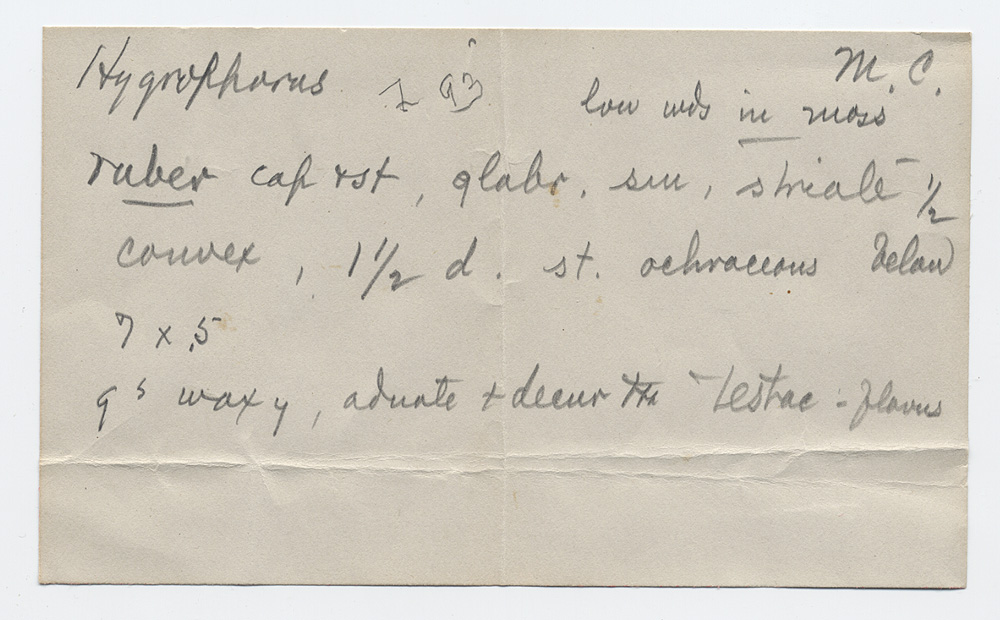 Hygrophorus 1 93 M. C.
low wds in moss
ruber cap rst, glabr. sm, striate 1/2
convex, 1 1/2 d. st. ochraceous below
7 x .5
gs waxy, adnate + decur Testac - flavus